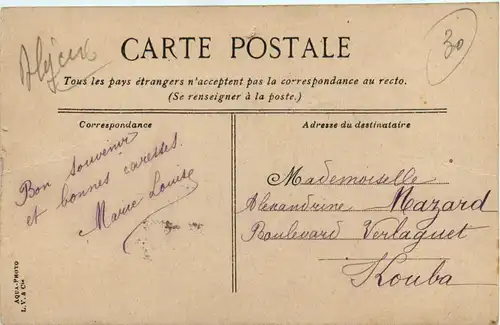 Alger
30
CARTE POSTALE
Tous les pays étrangers n'acceptent pas la correspondance au recto.
(Se renseigner à la poste.)
Correspondance
Adresse du destinataire
Bon souvenir
et bonnes caresses.
Marie Louise
Mademoiselle
Alexandrine Mazard
Boulevard Verlaguet
Kouba
AQUA-PHOTO
L. V. & Cie